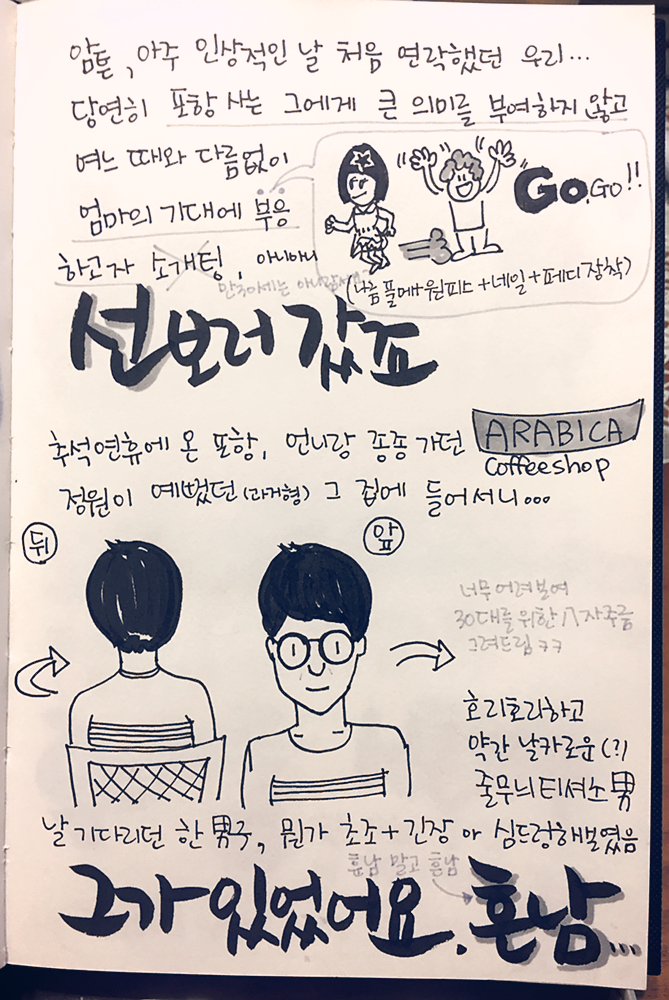 암튼, 아주 인상적인 날 처음 연락했던 우리...
당연히 포항 사는 그에게 큰 의미를 부여하지 않고
여느 때와 다름없이
엄마의 기대에 부응
하고자 소개팅, 아니아니
Go.Go!!
(나름 풀메+원피스+네일+페디장착)
선보러 갔죠
추석연휴에 온 포항, 언니랑 종종 가던
ARABICA
coffeeshop
정원이 예뻤던(과거형) 그 집에 들어서니...
뒤
앞
너무 어려보여
30대를 위한 八자주름
그려드림 ㅋㅋ
호리호리하고
약간 날카로운(?)
줄무늬티셔츠男
날 기다리던 한 男子, 뭔가 초조+긴장 아 심드렁해보였음
훈남 말고 흔남
그가 있었어요. 흔남...